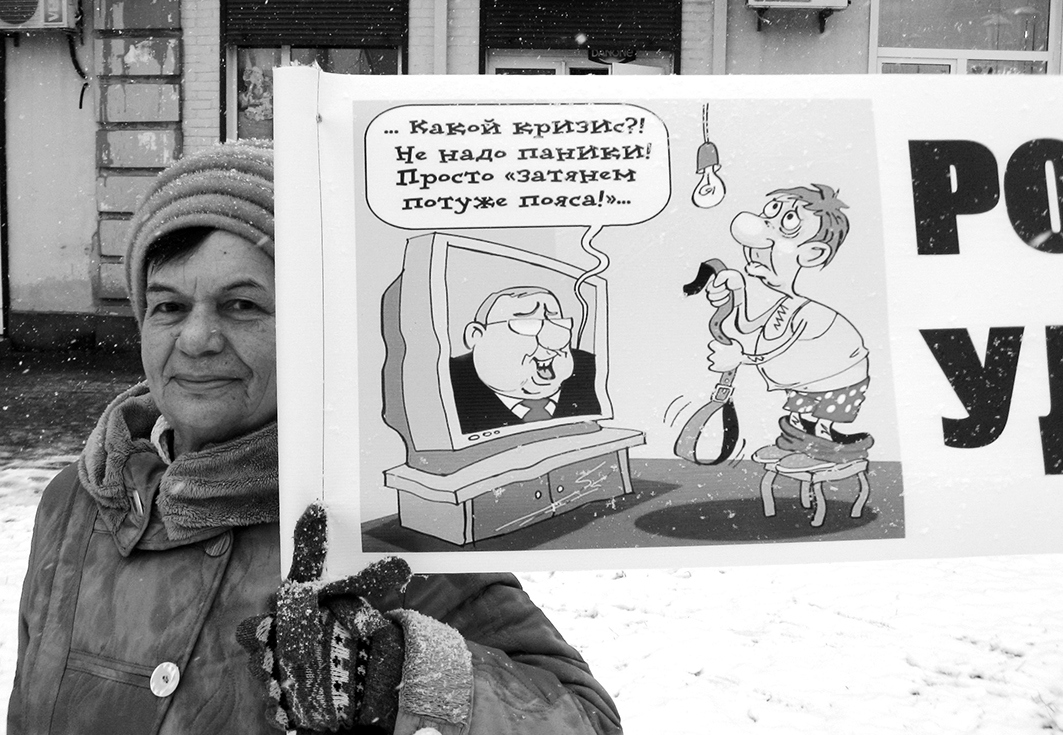 ... Какой кризис?!
Не надо паники!
Просто «затянем
потуже пояса!»...
РО
У